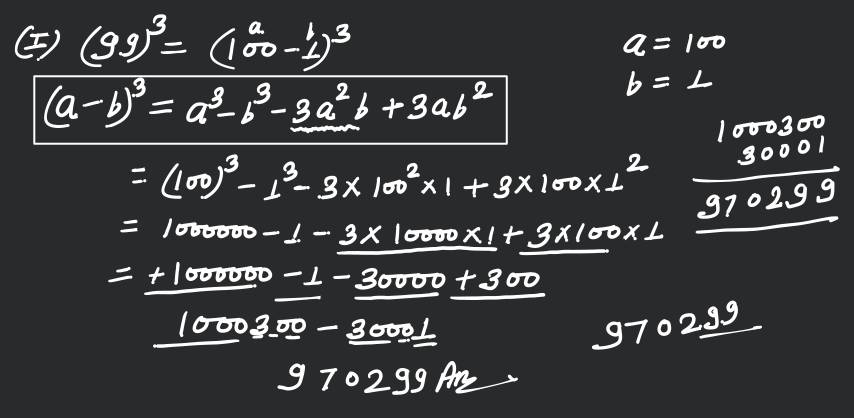 (I) (99)³ = (100 - 1)³
a b
a = 100
b = 1
(a-b)³ = a³-b³-3a²b+3ab²
= (100)³ - 1³ - 3 × 100² × 1 + 3 × 100 × 1²
= 1000000 - 1 - 3 × 10000 × 1 + 3 × 100 × 1
= +1000000 - 1 - 30000 + 300
1000300 - 30001
970299 Ans
1000300
30001
970299
970299